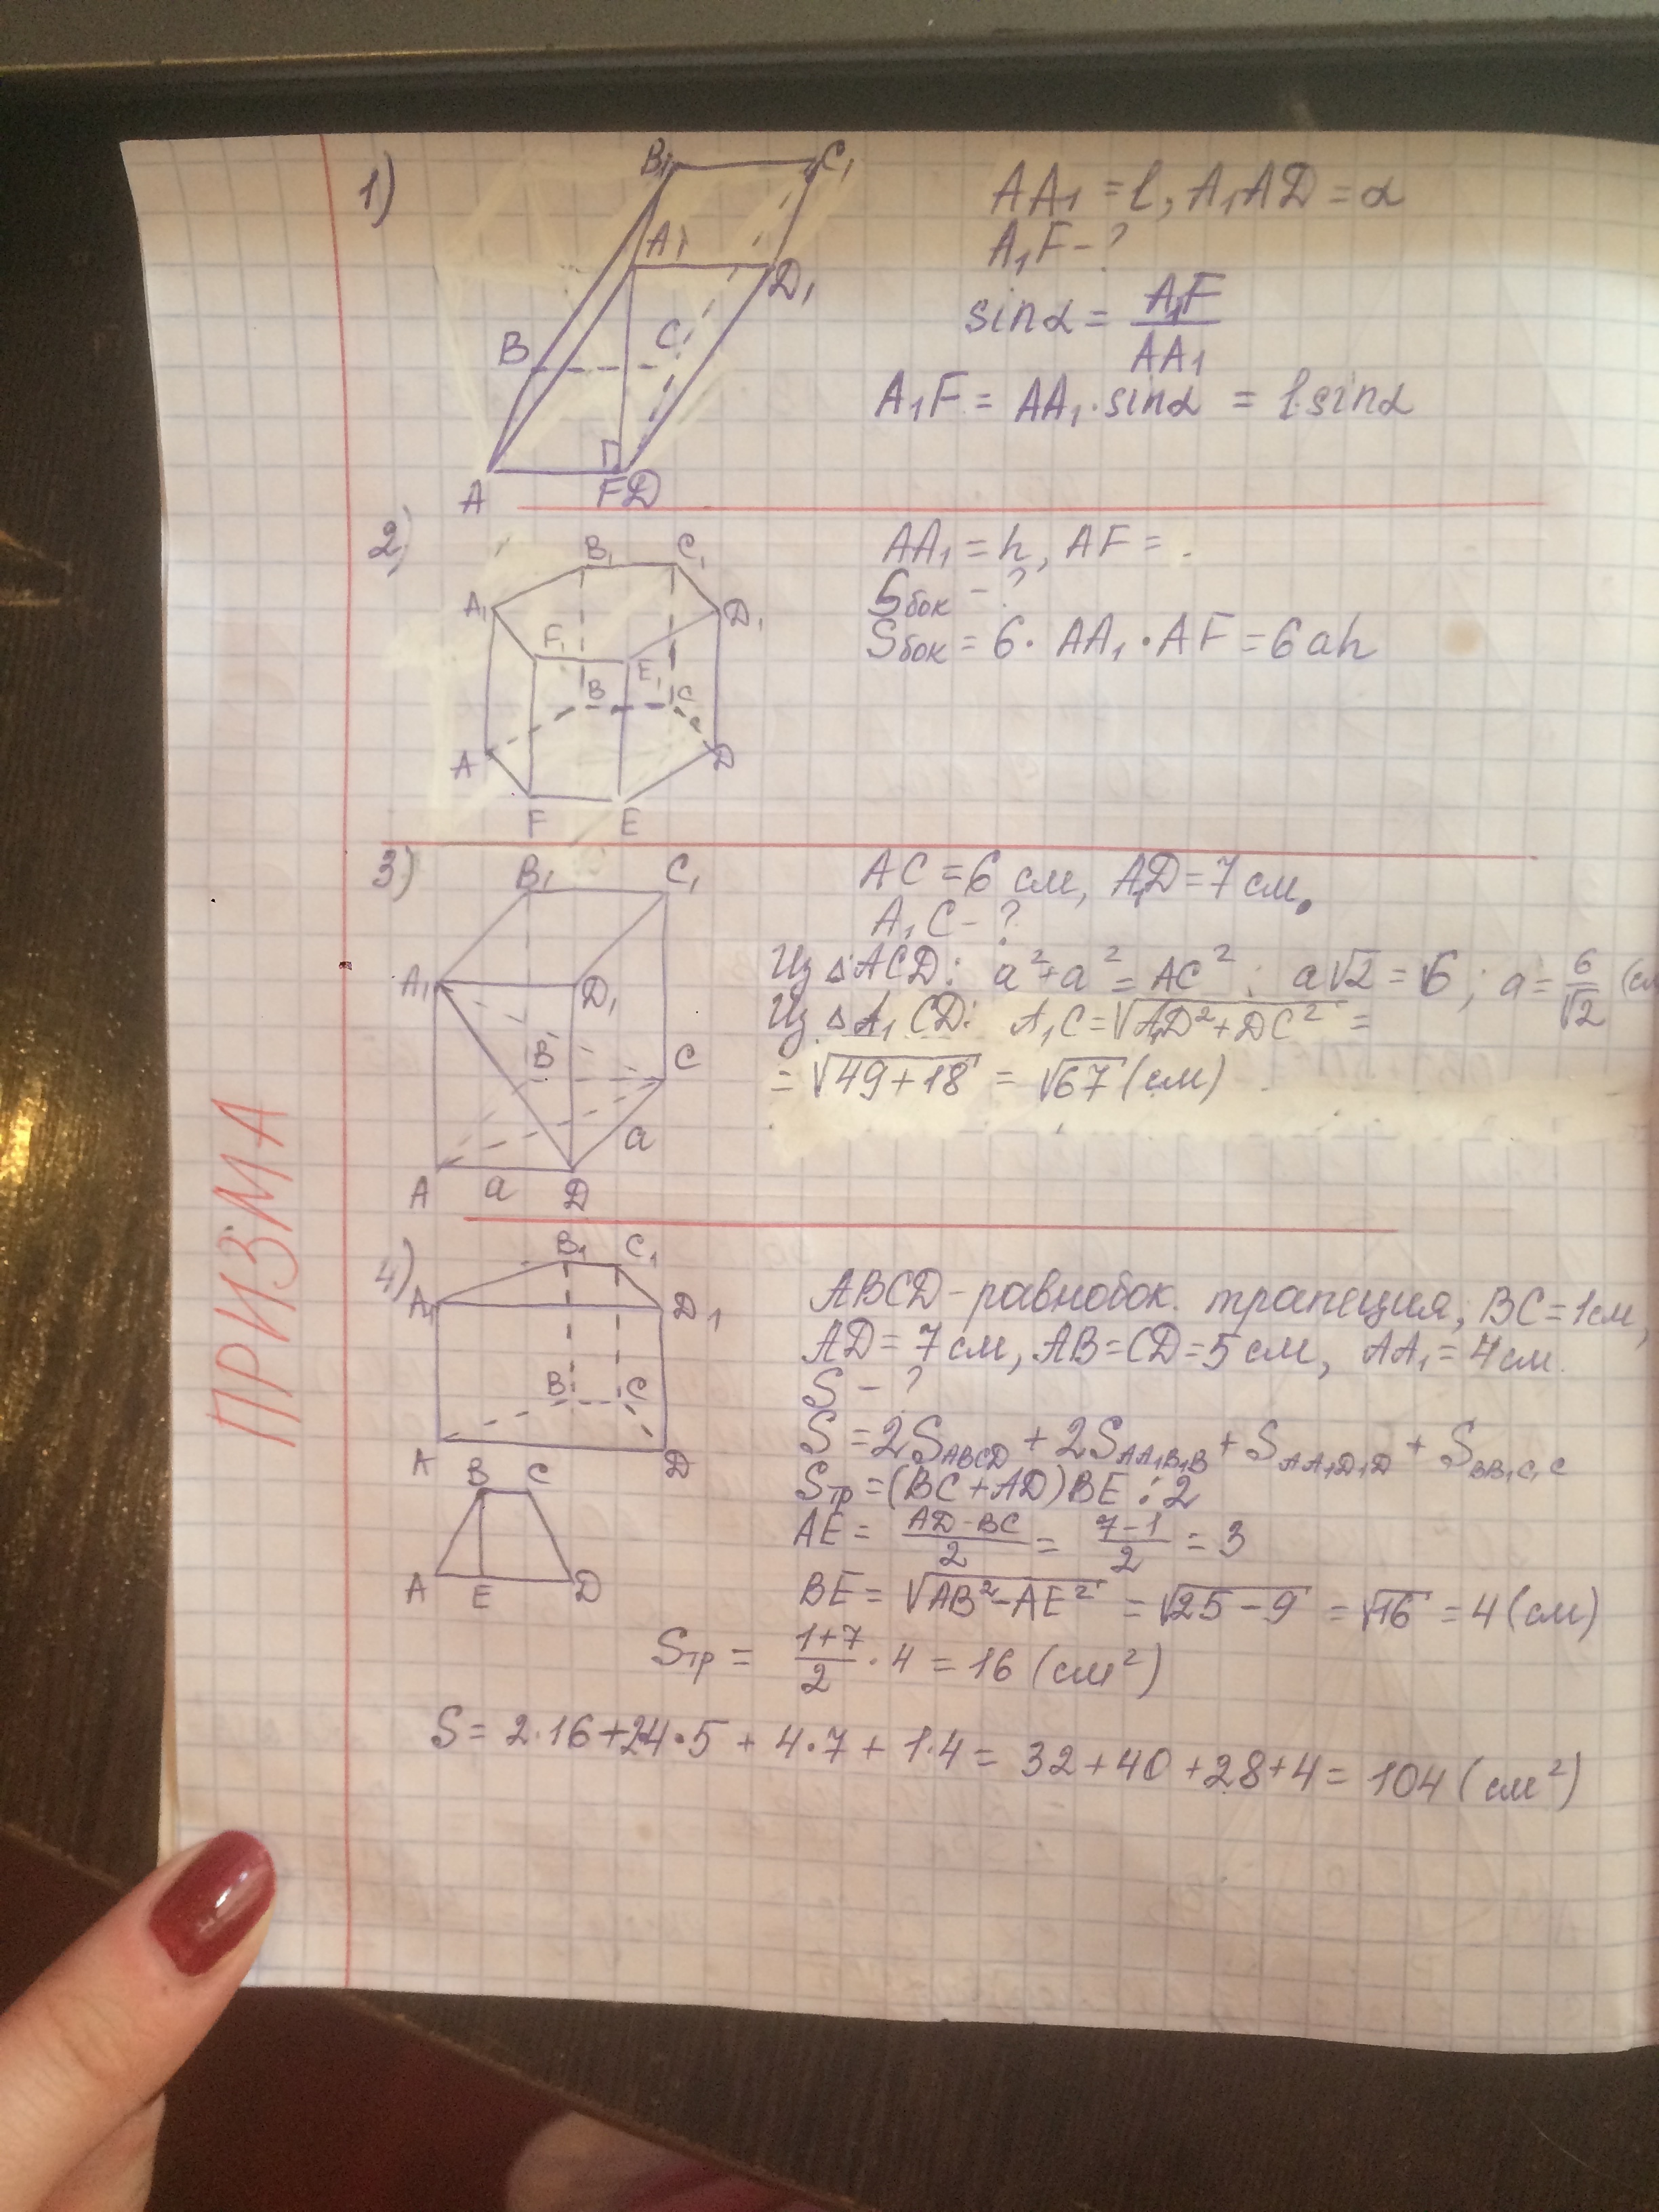 ПРИЗМА
1)
B₁ C₁
A₁
D₁
B C
A F D
AA₁ = l, A₁AD = α
A₁F - ?
sinα = A₁F / AA₁
A₁F = AA₁ · sinα = l·sinα
2)
B₁ C₁
A₁ D₁
F₁ E₁
B C
A D
F E
AA₁ = h, AF = .
Sбок - ?
Sбок = 6 · AA₁ · AF = 6ah
3)
B₁ C₁
A₁ D₁
B C
a
A a D
AC = 6 см, A₁D = 7 см.
A₁C - ?
Из △ACD: a² + a² = AC²; a√2 = 6; a = 6/√2 (см
Из △A₁CD: A₁C = √(A₁D² + DC²) =
= √(49 + 18) = √67 (см)
4)
B₁ C₁
A₁ D₁
B C
A D
B C
A E D
ABCD - равнобок. трапеция, BC = 1см,
AD = 7 см, AB = CD = 5 см, AA₁ = 4 см.
S - ?
S = 2S_ABCD + 2S_AA₁B₁B + S_AA₁D₁D + S_BB₁C₁C
Sтр = (BC + AD) BE : 2
AE = (AD - BC)/2 = (7 - 1)/2 = 3
BE = √(AB² - AE²) = √(25 - 9) = √16 = 4 (см)
Sтр = (1 + 7)/2 · 4 = 16 (см²)
S = 2·16 + 2·4·5 + 4·7 + 1·4 = 32 + 40 + 28 + 4 = 104 (см²)